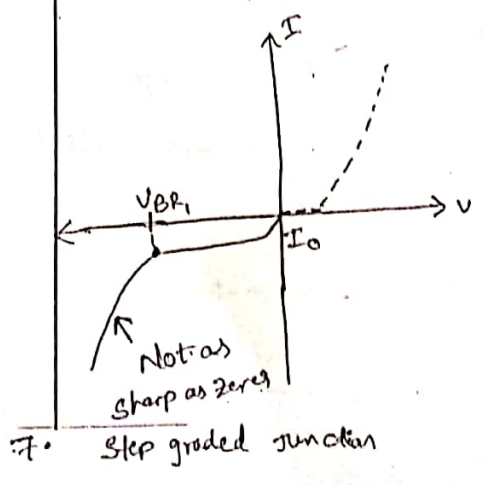 I
V
VBR1
I0
Not as
sharp as zener
7. Step graded Junction